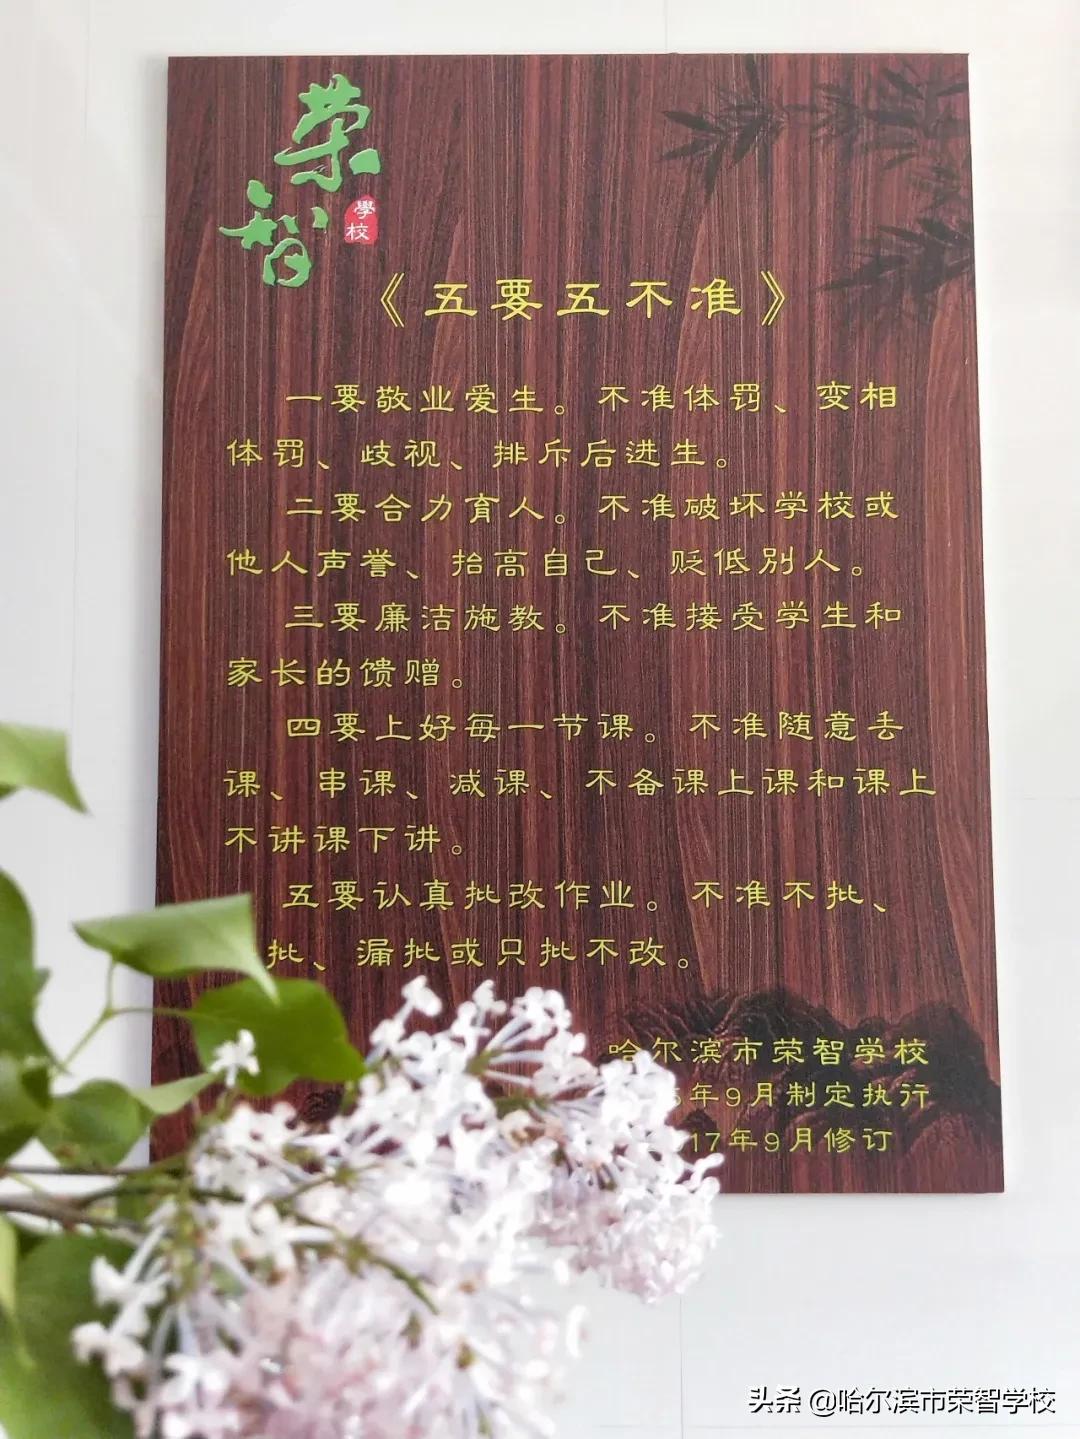 荣
智
學校
《五要五不准》
一要敬业爱生。不准体罚、变相
体罚、歧视、排斥后进生。
二要合力育人。不准破坏学校或
他人声誉、抬高自己、贬低别人。
三要廉洁施教。不准接受学生和
家长的馈赠。
四要上好每一节课。不准随意丢
课、串课、减课、不备课上课和课上
不讲课下讲。
五要认真批改作业。不准不批、
批、漏批或只批不改。
哈尔滨市荣智学校
年9月制定执行
17年9月修订
头条 @哈尔滨市荣智学校